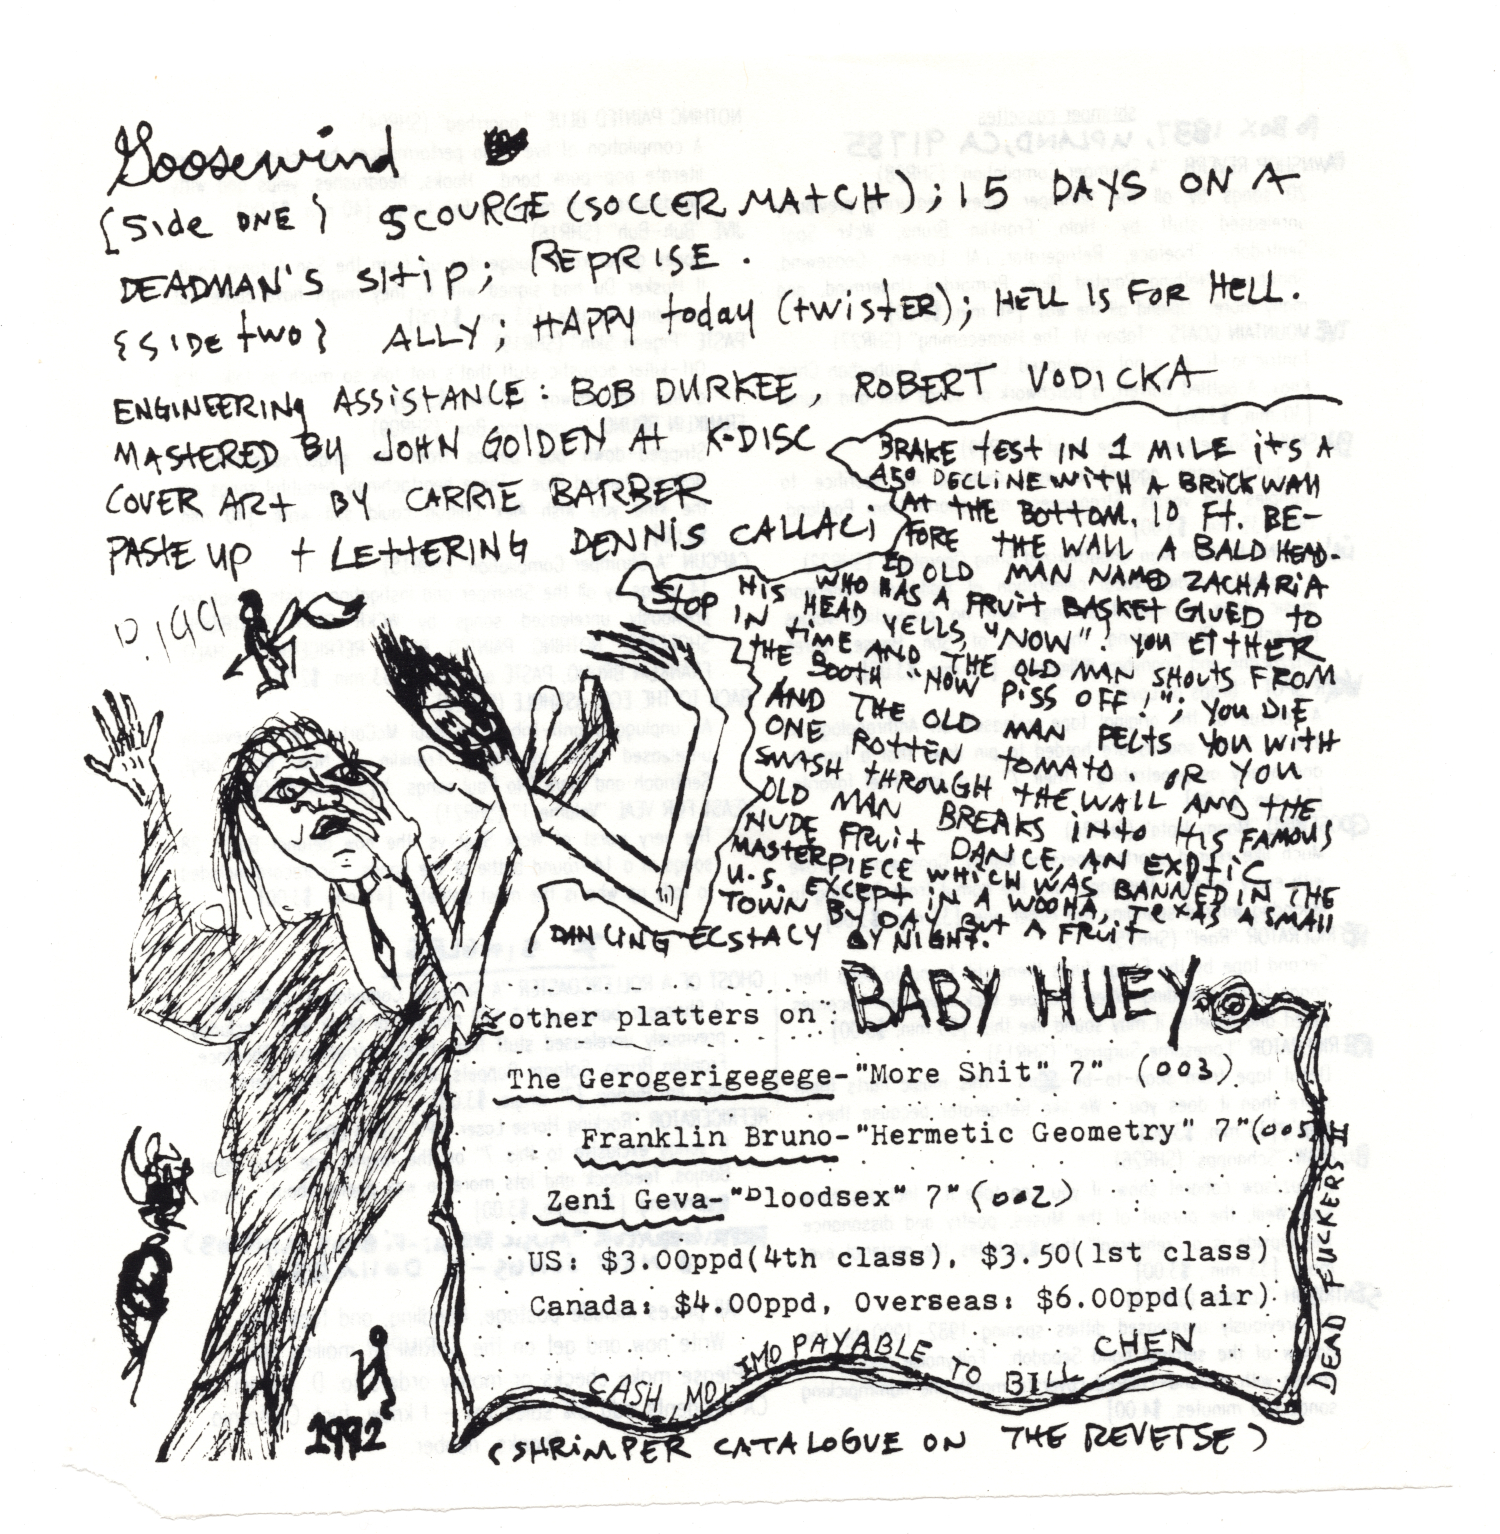 Goosewind
{Side ONE} SCOURGE (SOCCER MATCH); 15 DAYS ON A
DEADMAN'S SHIP; REPRISE.
{SIDE two} ALLY; HAPPY today (twistER); HELL IS FOR HELL.
ENGINEERING ASSISTANCE: BOB DURKEE, ROBERT VODICKA
MASTERED BY JOHN GOLDEN At K-DISC
COVER ARt BY CARRIE BARBER
PASTE UP + LETTERING DENNIS CALLACI
P. 1991
BRAKE TEST IN 1 MILE it'S A
450 DECLINE WITH A BRICK WALL
At THE BOTTOM. 10 Ft. BE-
FORE THE WALL A BALD HEAD-
ED OLD MAN NAMED ZACHARiA
WHO HAS A FRUit BASKET GLUED TO
HIS HEAD YELLS, "NOW". YOU EITHER
STOP IN TIME AND THE OLD MAN SHOUTS FROM
THE BOOTH "NOW PiSS OFF!"; YOU DIE
AND THE OLD MAN PELTS YOU WITH
ONE ROTTEN TOMATO OR YOU
SMASH THROUGH THE WALL AND tHE
OLD MAN BREAKS INTO HIS FAMOUS
NUDE FRUIT DANCE, AN EXOTIC
MASTERPIECE WHICH WAS BANNED IN THE
U.S. EXCEPT IN A WOOHA, TEXAS A SMALL
TOWN BY DAY BUT A FRUIT
DANCING ECSTACY BY NIGHT.
other platters on: BABY HUEY
The Gerogerigegege-"More Shit" 7" (003).
Franklin Bruno-"Hermetic Geometry" 7"(005)
Zeni Geva-"Bloodsex" 7"(002)
US: $3.00ppd(4th class), $3.50(1st class)
Canada: $4.00ppd, Overseas: $6.00ppd(air).
CASH, MO, IMO PAYABLE TO BILL CHEN
DEAD FUCKERS II
1992
(SHRIMPER CATALOGUE ON THE REVERSE)